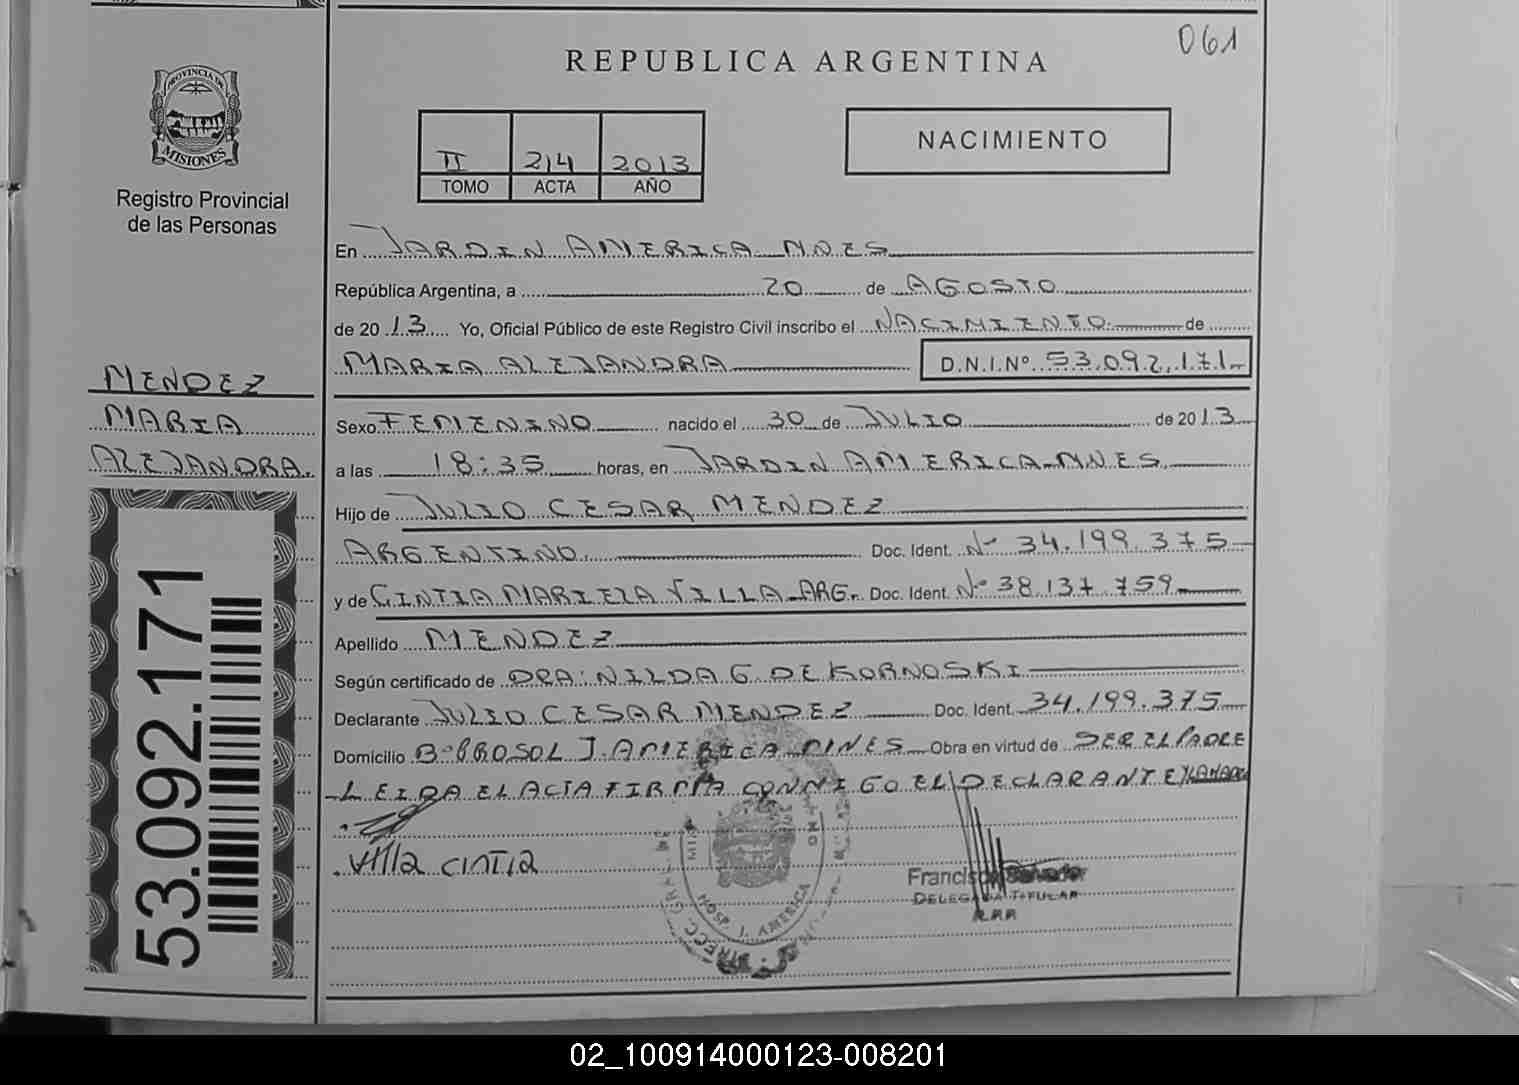 061
REPUBLICA ARGENTINA
PROVINCIA DE
MISIONES
Registro Provincial
de las Personas
II 214 2013
TOMO ACTA AÑO
NACIMIENTO
En JARDIN AMERICA MNES
República Argentina, a 20 de AGOSTO
de 2013 Yo, Oficial Público de este Registro Civil inscribo el NACIMIENTO de
MARIA ALEJANDRA D.N.I.Nº 53.092.171
MENDEZ
MARIA
ALEJANDRA.
Sexo FEMENINO nacido el 30 de JULIO de 2013
a las 18:35 horas, en JARDIN AMERICA MNES
Hijo de JULIO CESAR MENDEZ
ARGENTINO. Doc. Ident. Nº 34.199.375
y de CINTIA MARIELA VILLA ARG. Doc. Ident. Nº 38.137.759
Apellido MENDEZ
Según certificado de DRA: NILDA G DE KORNOSKI
Declarante JULIO CESAR MENDEZ Doc. Ident. 34.199.375
Domicilio Bº J. AMERICA MNES Obra en virtud de SER EL PADRE
LEIDA EL ACTA FIRMA CONMIGO EL DECLARANTE Y LA MADRE
villa cintia
53.092.171
HOSP. J. AMERICA
Francisco Salvador
DELEGADA TITULAR
02_100914000123-008201